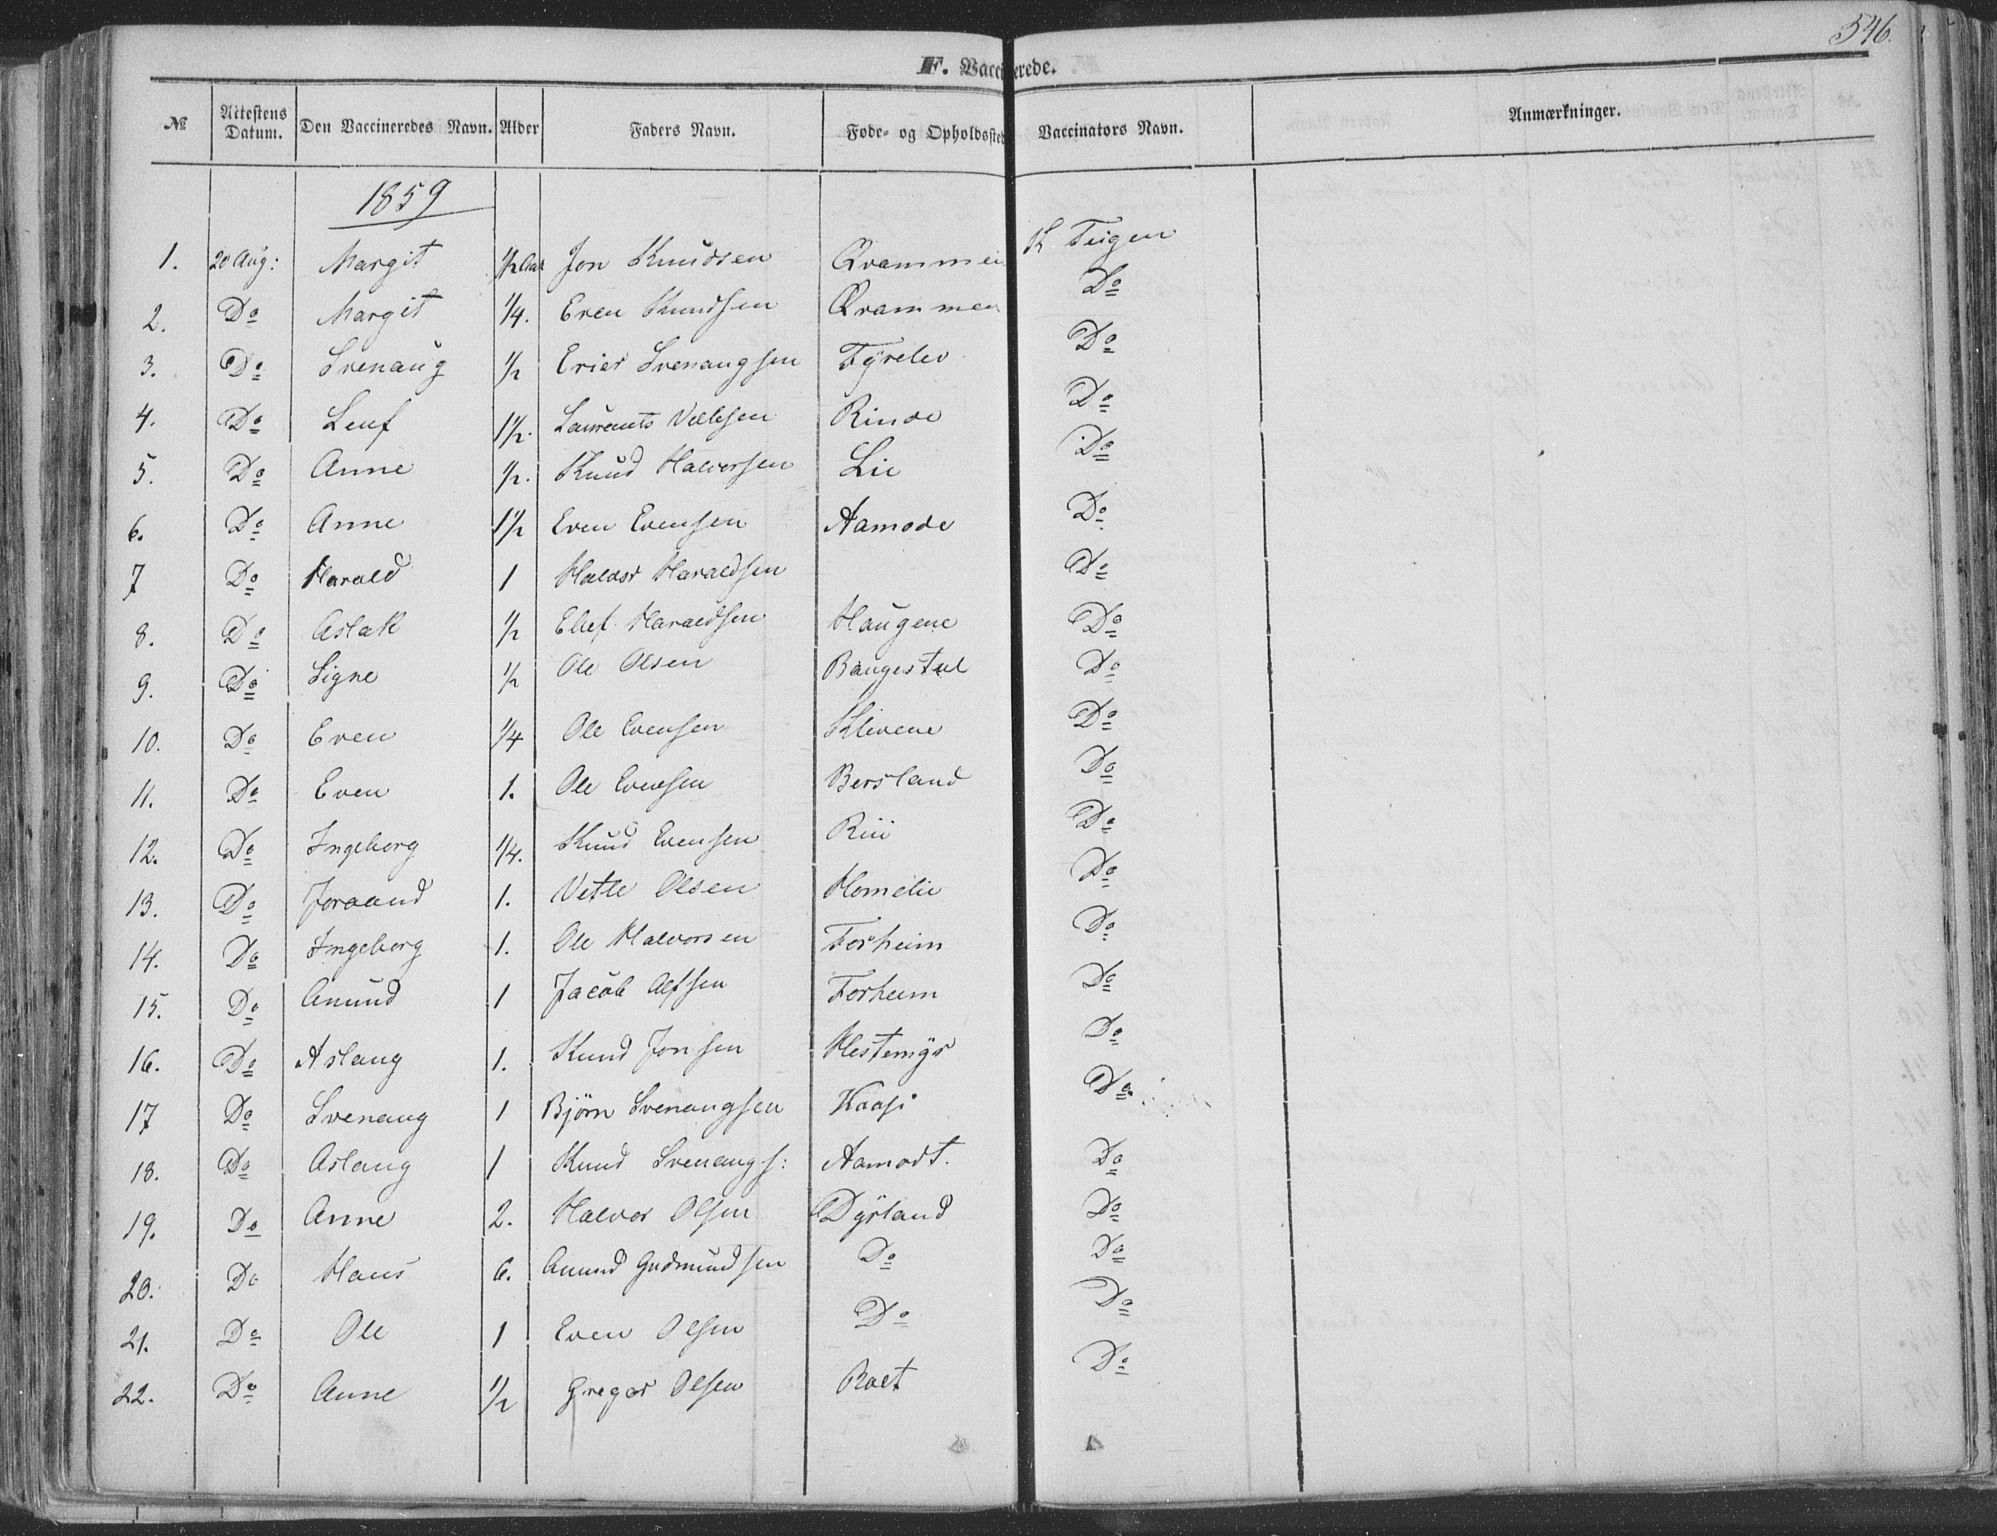 546.
F. Vaccinerede.
№ Attestens Datum. Den Vaccineredes Navn. Alder Faders Navn. Føde- og Opholdssted Vaccinators Navn. Anmærkninger.
1859
1. 20 Aug: Margit 1/2 Aar Jon Knudsen Qvammen K Teigen
2. Do Margit 1/4. Even Knudsen Qvammen Do
3. Do Svenaug 1/2 Svenaugsen Do
4. Do Leuf 1 1/2. Rinde Do
5. Do Anne 1/2. Knud Halvorsen Lie Do
6. Do Anne 1 1/2 Even Evensen Aamode Do
7 Do Harald 1 Halvor Haraldsen Do
8. Do Aslak 1/2 Elef Haraldsen Haugene Do
9. Do Signe 1/2 Ole Olsen Baugestul Do
10. Do Even 1/4 Ole Evensen Klevene Do
11. Do Even 1. Ole Evensen Bersland Do
12. Do Ingeborg 1/4. Knud Evensen Rui Do
13. Do Joraand 1. Vetle Olsen Homelie Do
14. Do Ingeborg 1. Ole Halvorsen Forheim Do
15. Do Anund 1 Jacob Alfsen Forheim Do
16. Do Aslaug 1. Knud Jonsen Hestemÿr Do
17 Do Svenaug 1 Bjørn Svenaugsen Kaasi Do
18. Do Aslaug 1 Knud Svenaugs: Aamodt. Do
19. Do Anne 2. Halvor Olsen Dÿrland Do
20. Do Hans 6. Anund Gudmundsen Do Do
21. Do Ole 1 Even Olsen Do Do
22. Do Anne 1/2 Gregar Olsen Roet Do